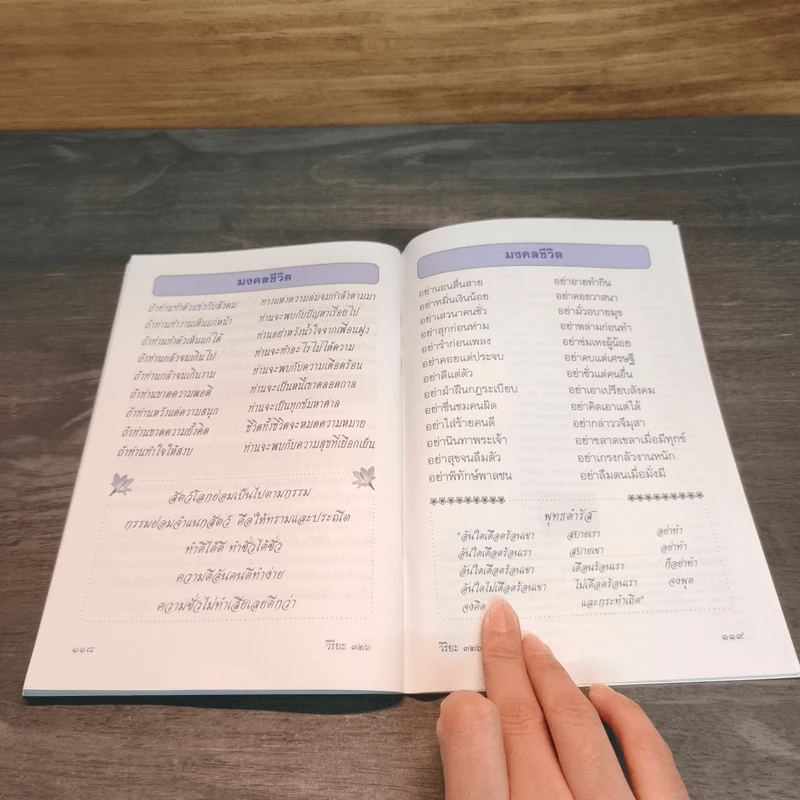 มงคลชีวิต
ถ้าท่านทำตัวแข่งกับสังคม ทางแห่งความล่มจมกำลังตามมา
ถ้าท่านทำงานเห็นแก่หน้า ท่านจะพบกับปัญหาเรื่อยไป
ถ้าท่านทำตัวเห็นแก่ได้ ท่านอย่าหวังน้ำใจจากเพื่อนฝูง
ถ้าท่านกลัวจนเกินไป ท่านจะทำอะไรไม่ได้ความ
ถ้าท่านกล้าจนเกินงาม ท่านจะพบกับความเดือดร้อน
ถ้าท่านขาดความพอดี ท่านจะเป็นหนี้เขาตลอดกาล
ถ้าท่านหวังแต่ความสนุก ท่านจะเป็นทุกข์มหาศาล
ถ้าท่านขาดความยั้งคิด ชีวิตทั้งชีวิตจะหมดความหมาย
ถ้าท่านทำใจให้สงบ ท่านจะพบกับความสุขที่เยือกเย็น
สัตว์โลกย่อมเป็นไปตามกรรม
กรรมย่อมจำแนกสัตว์ คือให้ทรามและประณีต
ทำดีได้ดี ทำชั่วได้ชั่ว
ความดีอันคนดีทำง่าย
ความชั่วไม่ทำเสียเลยดีกว่า
๑๑๘ วิริยะ ๓๒๖
มงคลชีวิต
อย่านอนตื่นสาย อย่าอายทำกิน
อย่าหมิ่นเงินน้อย อย่าคอยวาสนา
อย่าเสวนาคนชั่ว อย่ามั่วอบายมุข
อย่าสุกก่อนห่าม อย่าพล่ามก่อนทำ
อย่ารำก่อนเพลง อย่าข่มเหงผู้น้อย
อย่าคอยแต่ประจบ อย่าคบแต่เศรษฐี
อย่าดีแต่ตัว อย่าชั่วแต่คนอื่น
อย่าฝ่าฝืนกฎระเบียบ อย่าเอาเปรียบสังคม
อย่าชื่นชมคนผิด อย่าคิดเอาแต่ได้
อย่าใส่ร้ายคนดี อย่ากล่าววจีมุสา
อย่านินทาพระเจ้า อย่าขลาดเขลาเมื่อมีทุกข์
อย่าสุขจนลืมตัว อย่าเกรงกลัวงานหนัก
อย่าพิทักษ์พาลชน อย่าลืมตนเมื่อมั่งมี
พุทธดำรัส
"อันใดเดือดร้อนเขา สบายเรา อย่าทำ
อันใดเดือดร้อนเรา สบายเขา อย่าทำ
อันใดเดือดร้อนเขา เดือนร้อนเรา ก็อย่าทำ
อันใดไม่เดือดร้อนเขา ไม่เดือดร้อนเรา จงพูด
จงคิด และกระทำเถิด"
วิริยะ ๓๒๖ ๑๑๙